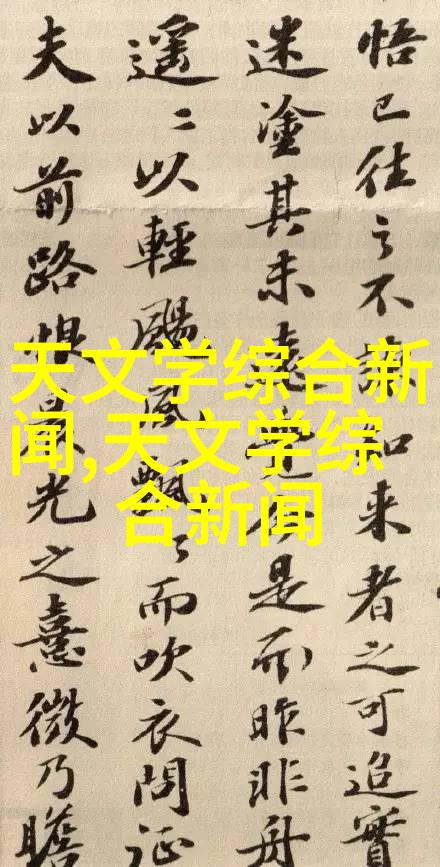 悟已往之不諫知来者之可追實
迷塗其未遠覺今是而昨非舟
遥々以輕颺風飄々而吹衣問征
夫以前路恨晨光之熹微乃瞻
天文学综合新
闻,天文学综
合新闻